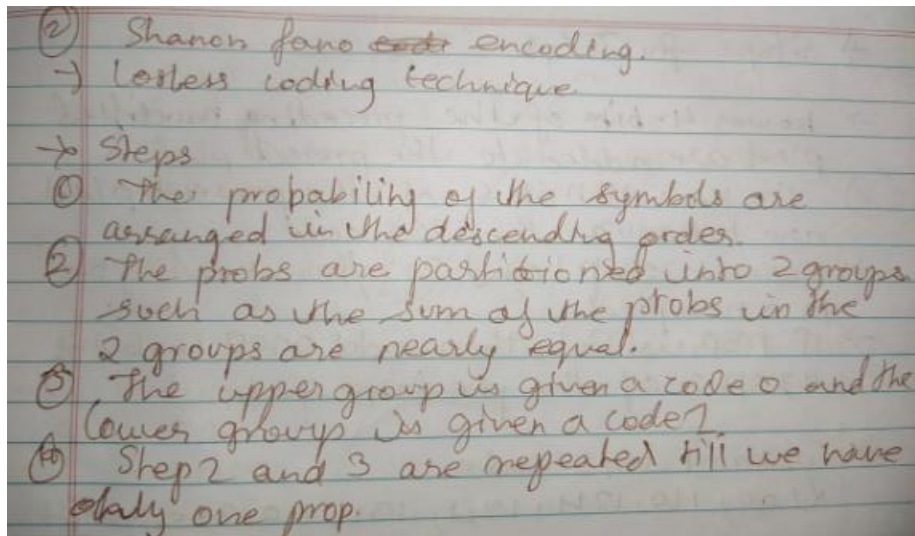 ② Shanon fano encoding.
→ Losless coding technique
→ Steps
① The probability of the symbols are
arranged in the descending order.
② The probs are partitioned into 2 groups
such as the sum of the probs in the
2 groups are nearly equal.
③ The upper group is given a code 0 and the
lower group is given a code 1.
④ Step 2 and 3 are repeated till we have
only one prop.